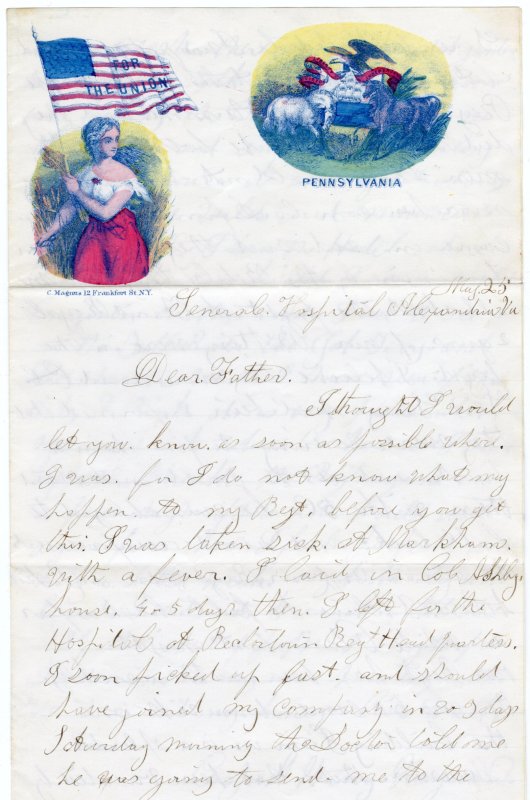 FOR
THE UNION
PENNSYLVANIA
C. Magnus 12 Frankfort St. N.Y.
May 25
General. Hospital Alexandria Va
Dear. Father.
I thought I would
let you. know. as soon as possible where.
I was. for I do not know what may
happen. to my Regt. before you get
this. I was taken sick. at Markham.
with a fever. I laid in Col Ashbys
house. 4 or 5 days then. I left for the
Hospital at Rectortown Regt Head quarters.
I soon picked up fast. and should
have joined my company in 2 or 3 days
Saturday morning the Doctor told me
he was going to send. me to the